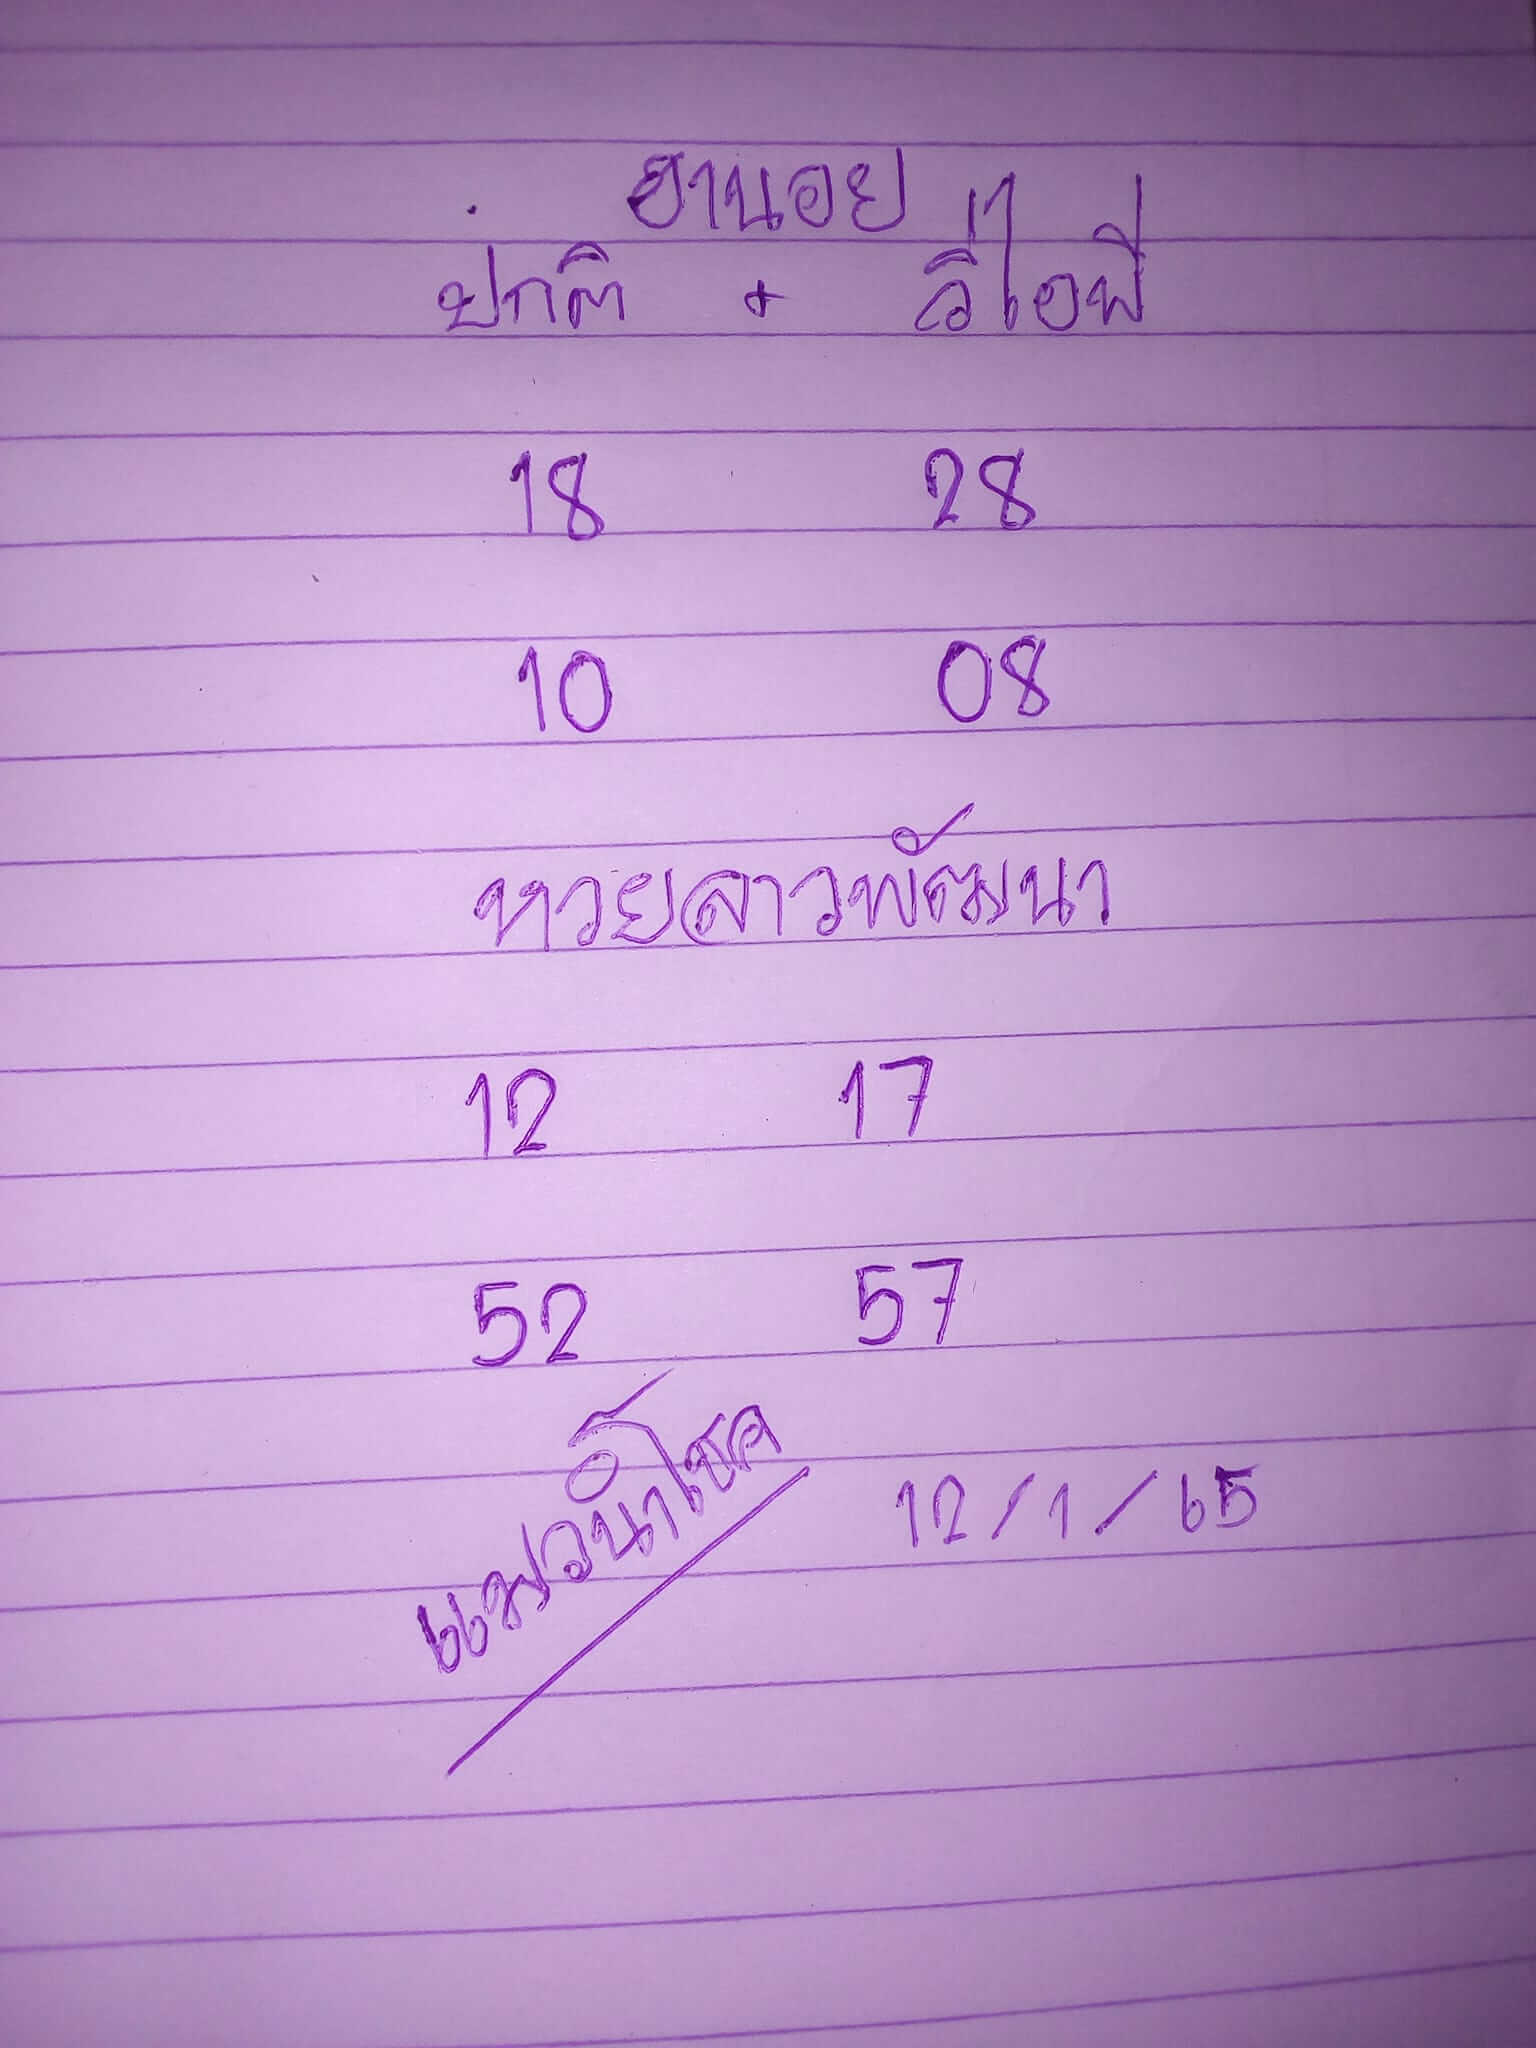 ฮานอย
ปกติ + วีไอพี
18 28
10 08
หวยลาวพัฒนา
12 17
52 57
แมวนำโชค 12/1/65